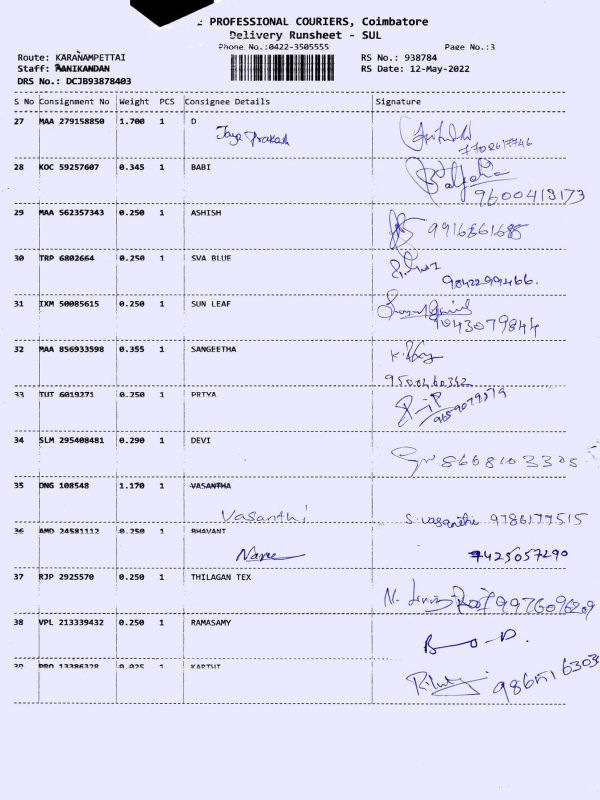 E PROFESSIONAL COURIERS, Coimbatore
Delivery Runsheet - SUL
Phone No.:0422-3505555 Page No.:3
Route: KARANAMPETTAI RS No.: 938784
Staff: MANIKANDAN RS Date: 12-May-2022
DRS No.: DCJB93878403
S No Consignment No Weight PCS Consignee Details Signature
27 MAA 279158850 1.700 1 D
Jaya Prakash
7702617746
28 KOC 59257607 0.345 1 BABI
9600413173
29 MAA 562357343 0.250 1 ASHISH
30 TRP 6802664 0.250 1 SVA BLUE
9842299466.
31 IXM 50085615 0.250 1 SUN LEAF
9043079844
32 MAA 856933598 0.355 1 SANGEETHA
33 TUT 6019271 0.250 1 PRIYA
34 SLM 295408481 0.290 1 DEVI
8668103305
35 DNG 108548 1.170 1 VASANTHA
Vasanthi S. vasanthi 9786177515
36 AMD 24581112 0.250 1 BHAVANI
7425057290
37 RJP 2925570 0.250 1 THILAGAN TEX
9976096209
38 VPL 213339432 0.250 1 RAMASAMY
39 PRO 13386328 0.025 1 KARTHI